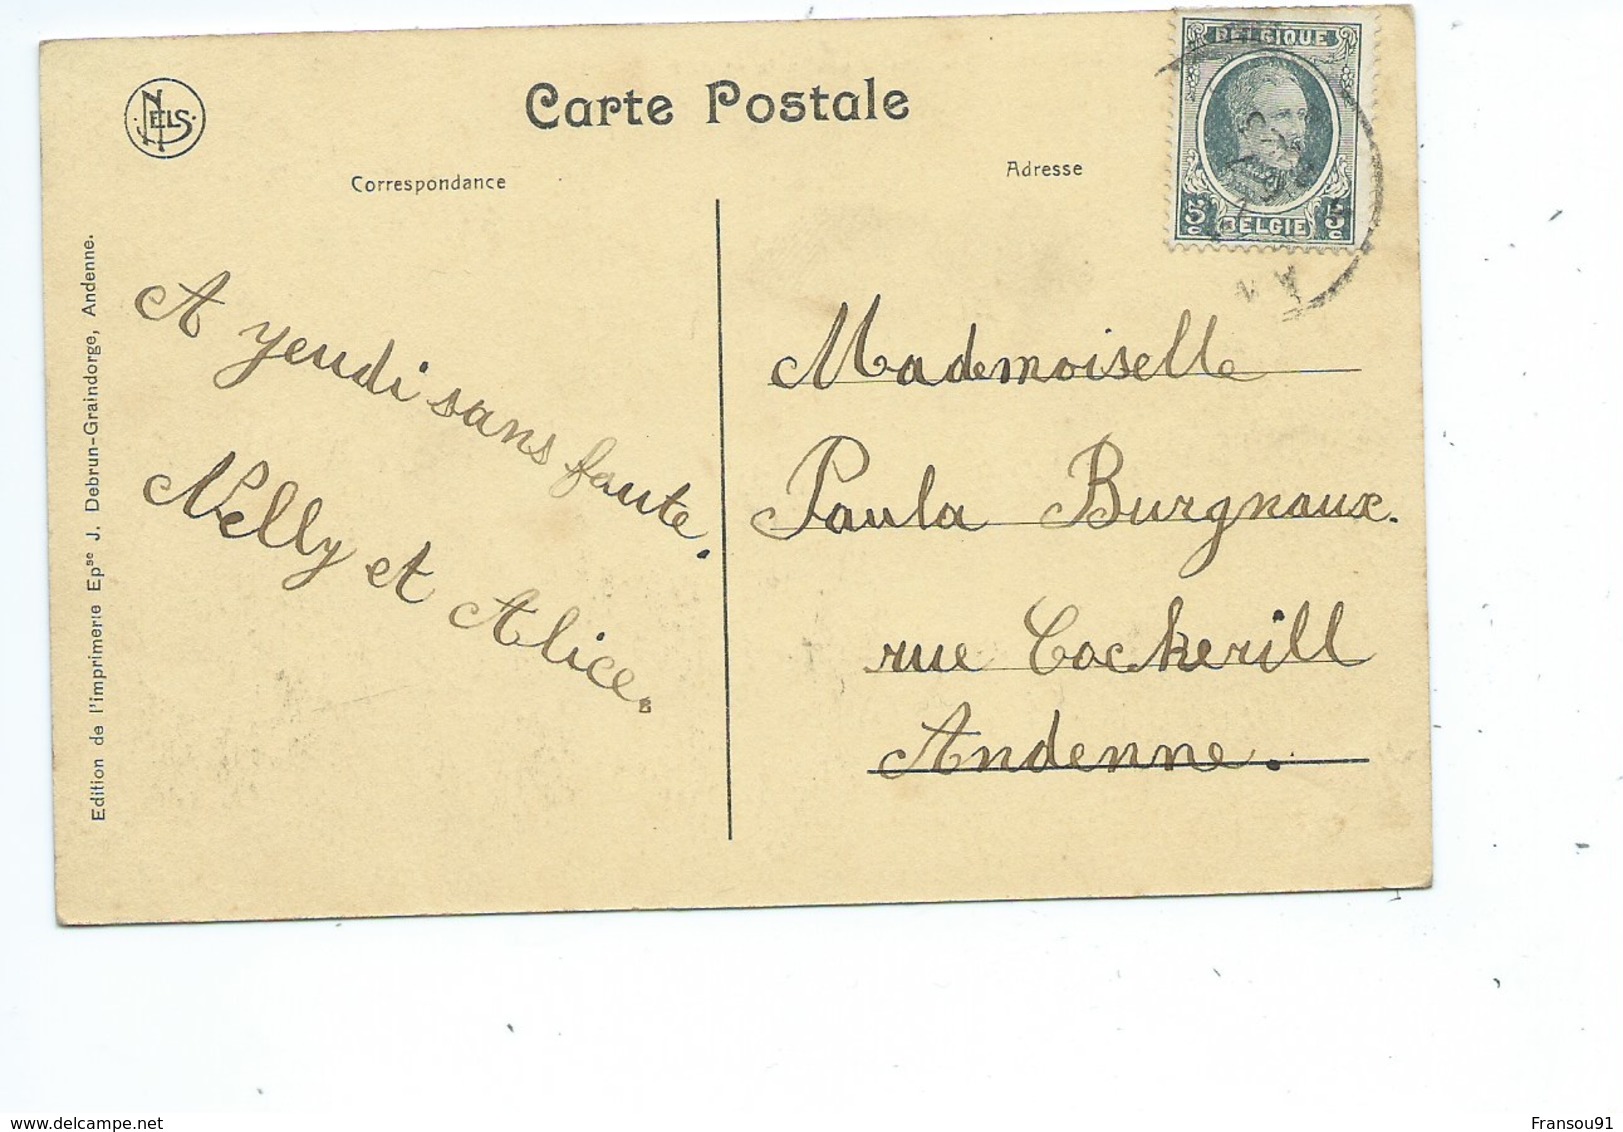 NELS
Carte Postale
Correspondance
Adresse
BELGIQUE
5c BELGIE 5c
Edition de l'imprimerie Epse J. Debrun-Graindorge, Andenne.
A yeudi sans faute.
Nelly et Alice.
Mademoiselle
Paula Burgnaux.
rue Cockerill
Andenne.
Fransou91